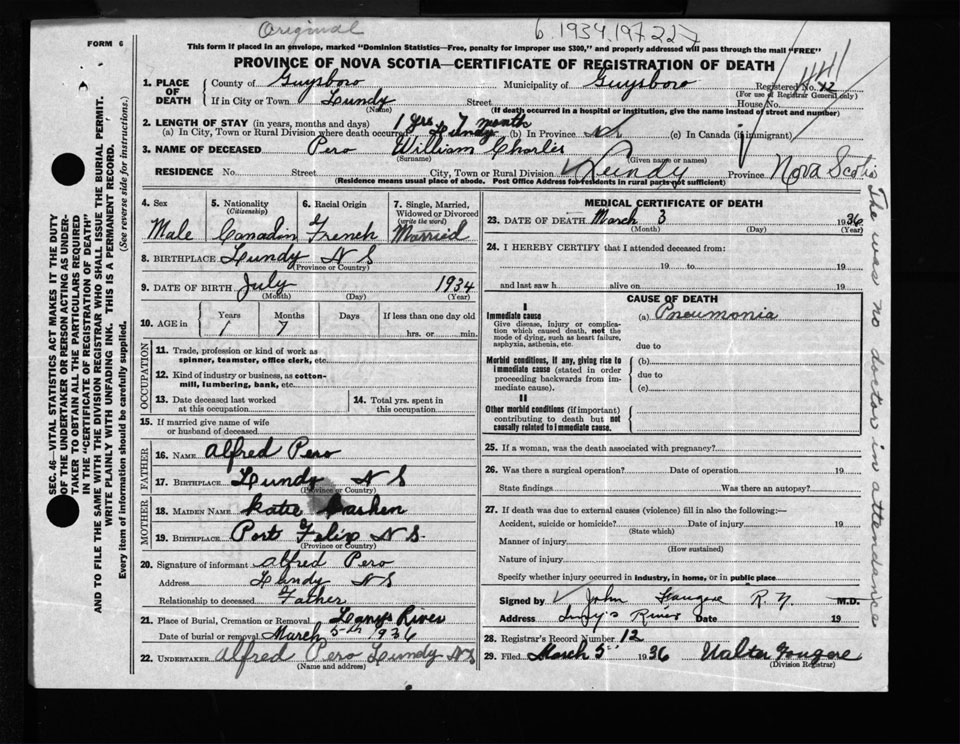 Original
6.1934.197227
FORM 6
This form if placed in an envelope, marked "Dominion Statistics—Free, penalty for improper use $300," and properly addressed will pass through the mail "FREE"
PROVINCE OF NOVA SCOTIA—CERTIFICATE OF REGISTRATION OF DEATH
1. PLACE OF DEATH County of Guysboro Municipality of Guysboro Registered No. 12
(For use of Registrar General only)
If in City or Town Lundy Street House No.
(Name) (If death occurred in a hospital or institution, give the name instead of street and number)
2. LENGTH OF STAY (in years, months and days) 1 yrs 7 month
(a) In City, Town or Rural Division where death occurred Lundy (b) In Province (c) In Canada (if immigrant)
3. NAME OF DECEASED Pero William Charles
(Surname) (Given name or names)
RESIDENCE No. Street City, Town or Rural Division Lundy Province Nova Scotia
(Residence means usual place of abode. Post Office Address for residents in rural parts not sufficient)
4. Sex 5. Nationality (Citizenship) 6. Racial Origin 7. Single, Married, Widowed or Divorced (write the word)
Male Canadin French Married
8. BIRTHPLACE Lundy N S
(Province or Country)
9. DATE OF BIRTH July 1934
(Month) (Day) (Year)
10. AGE in Years Months Days If less than one day old
1 7 hrs. or min.
OCCUPATION
11. Trade, profession or kind of work as spinner, teamster, office clerk, etc.
12. Kind of industry or business, as cotton-mill, lumbering, bank, etc.
13. Date deceased last worked at this occupation 14. Total yrs. spent in this occupation
15. If married give name of wife or husband of deceased
FATHER
16. Name Alfred Pero
17. Birthplace Lundy N S
(Province or Country)
MOTHER
18. Maiden Name Katie
19. Birthplace Port Felix N S
(Province or Country)
20. Signature of informant Alfred Pero
Address Lundy N S
Relationship to deceased Father
21. Place of Burial, Cremation or Removal Larrys River
Date of burial or removal March 5th 1936
22. Undertaker Alfred Pero Lundy N S
(Name and address)
MEDICAL CERTIFICATE OF DEATH
23. DATE OF DEATH March 3 1936
(Month) (Day) (Year)
24. I HEREBY CERTIFY that I attended deceased from:
19 to 19
and last saw h alive on 19
CAUSE OF DEATH
I
Immediate cause (a) Pneumonia
Give disease, injury or complication which caused death, not the mode of dying, such as heart failure, asphyxia, asthenia, etc.
due to
Morbid conditions, if any, giving rise to immediate cause (stated in order proceeding backwards from immediate cause).
(b)
due to
(c)
II
Other morbid conditions (if important) contributing to death but not causally related to immediate cause.
25. If a woman, was the death associated with pregnancy?
26. Was there a surgical operation? Date of operation 19
State findings Was there an autopsy?
27. If death was due to external causes (violence) fill in also the following:—
Accident, suicide or homicide? Date of injury 19
(State which)
Manner of injury
(How sustained)
Nature of injury
Specify whether injury occurred in industry, in home, or in public place
Signed by John Fougere R. N. M.D.
Address River Date 19
28. Registrar's Record Number 12
29. Filed March 5 1936 Walter Fougere
(Division Registrar)
The was no doctors in attendance
SEC. 46—VITAL STATISTICS ACT MAKES IT THE DUTY
OF THE UNDERTAKER OR PERSON ACTING AS UNDER-
TAKER TO OBTAIN ALL THE PARTICULARS REQUIRED
IN THE "CERTIFICATE OF REGISTRATION OF DEATH"
AND TO FILE THE SAME WITH THE DIVISION REGISTRAR WHO SHALL ISSUE THE BURIAL PERMIT.
WRITE PLAINLY WITH UNFADING INK. THIS IS A PERMANENT RECORD.
Every item of information should be carefully supplied. (See reverse side for instructions.)